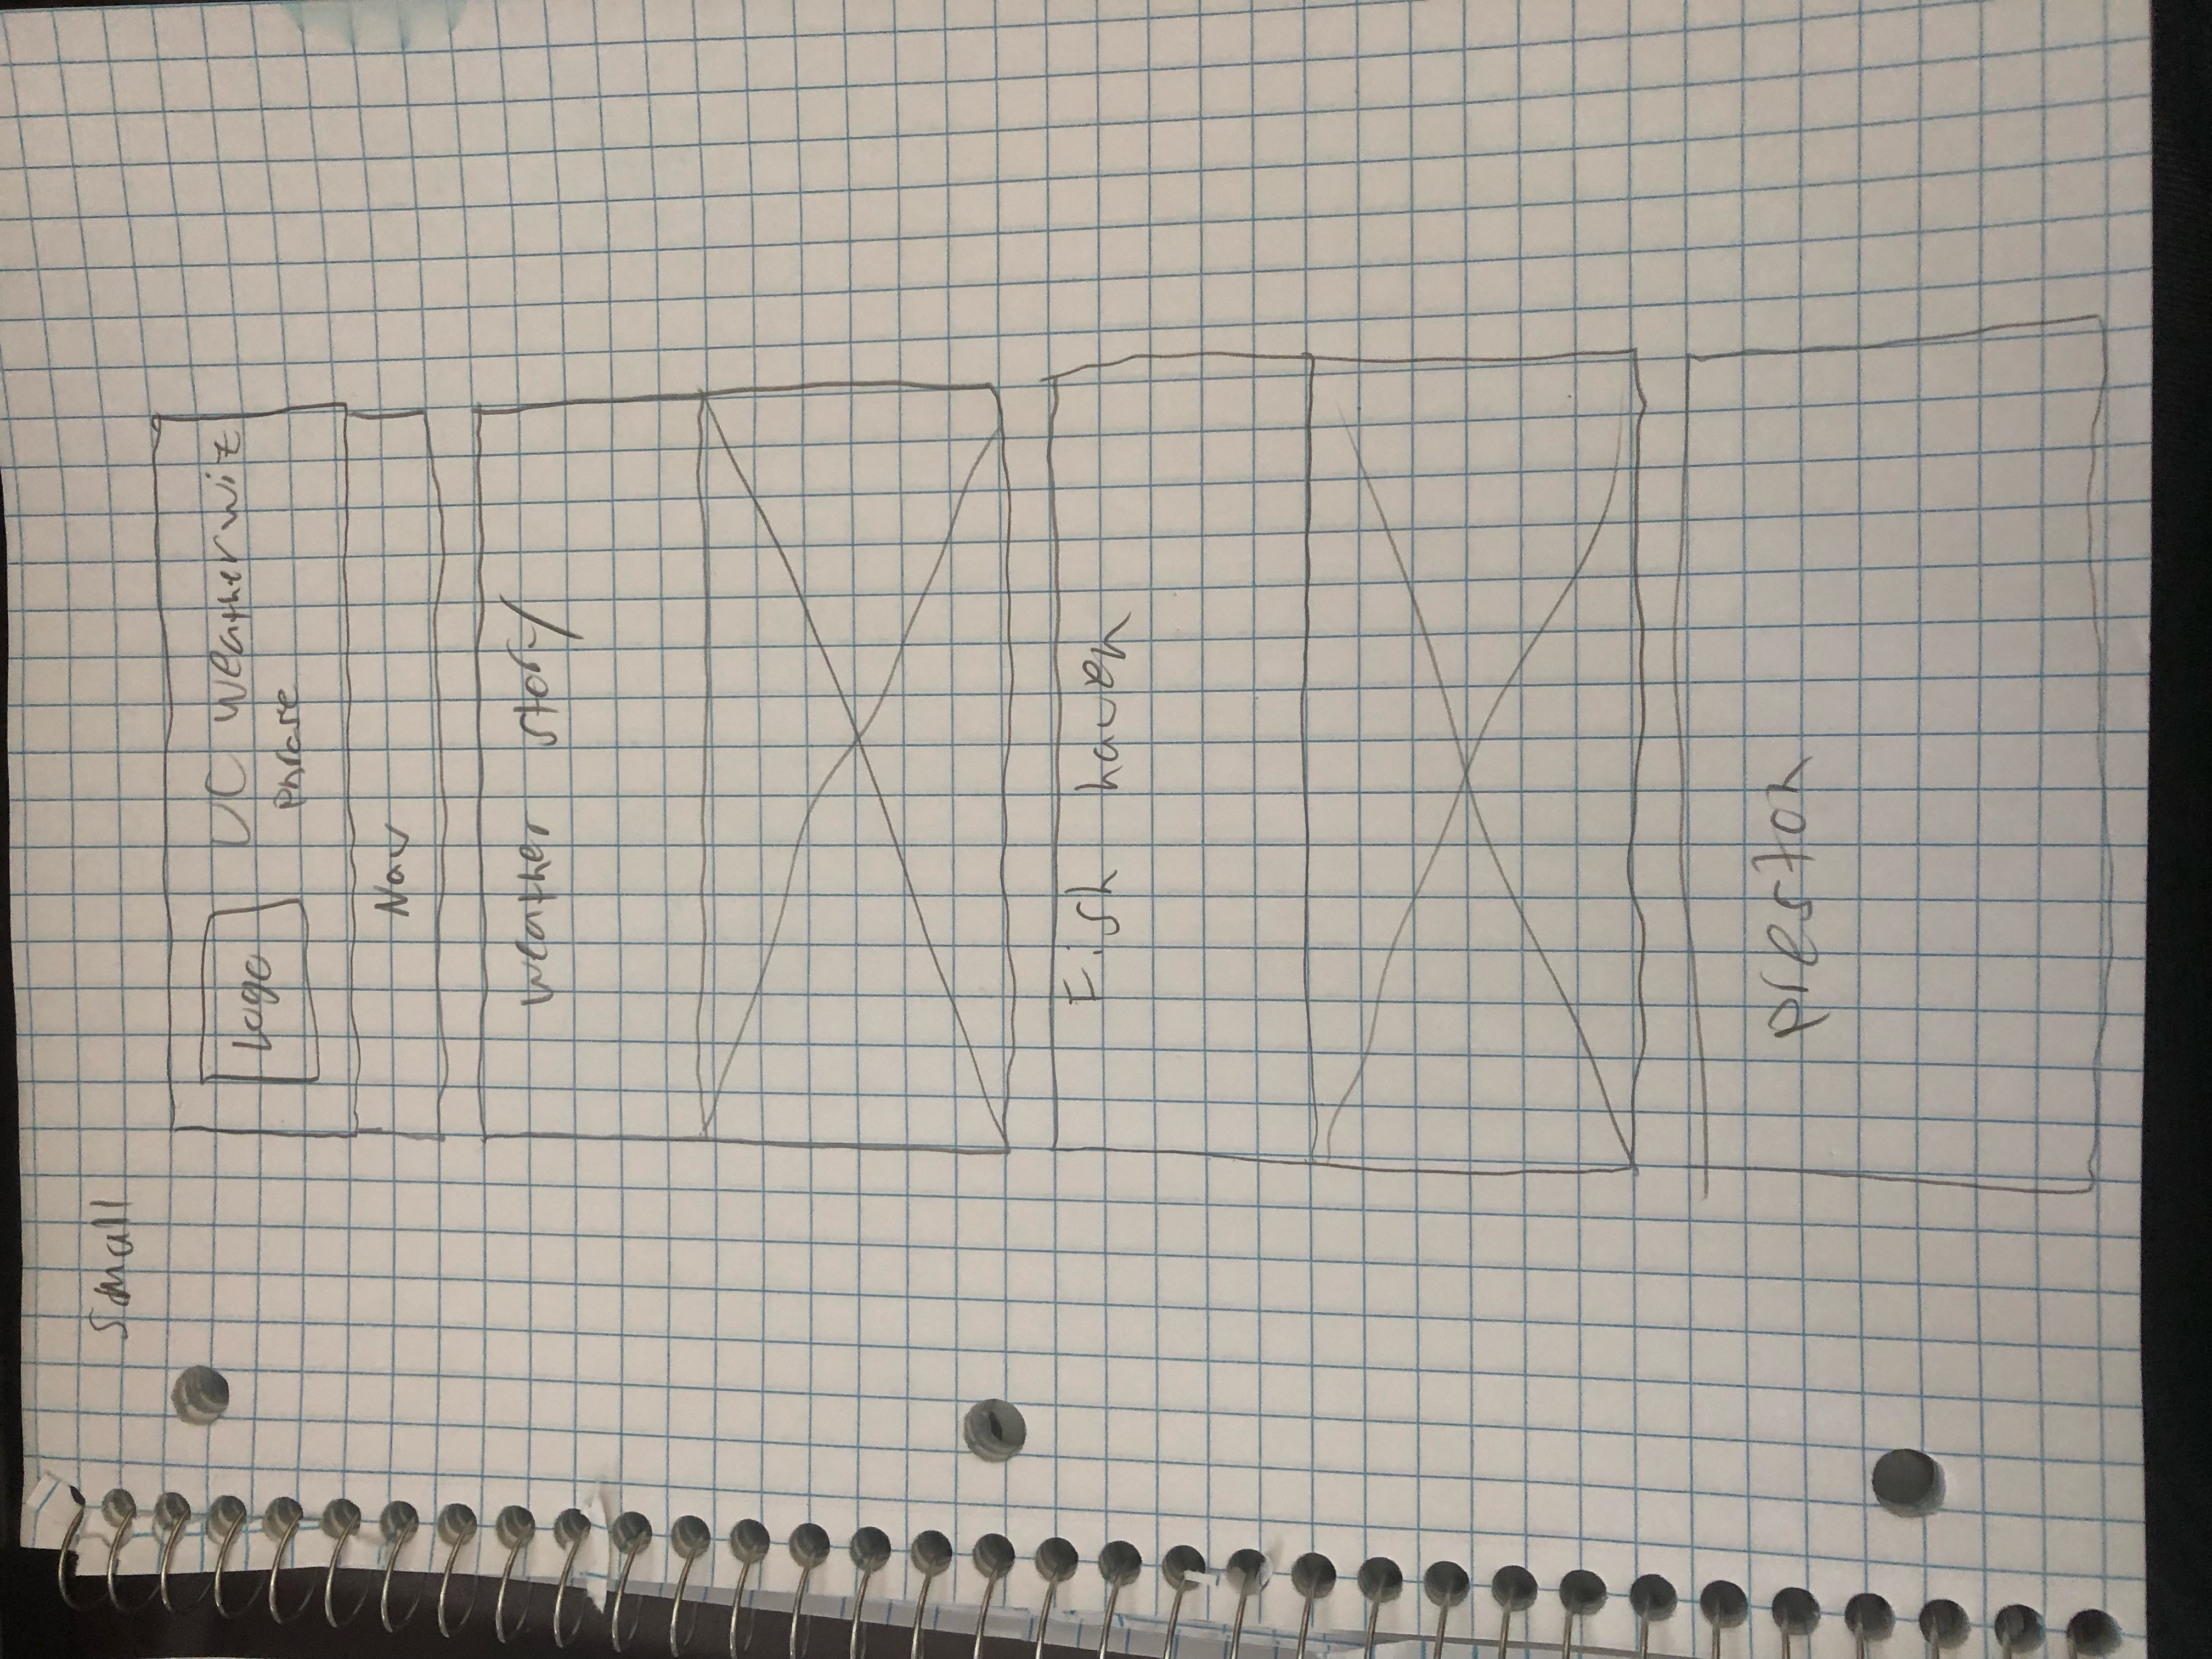 small
Logo
UC weatherwiz
phrase
Nav
weather story
Fish haven
preston